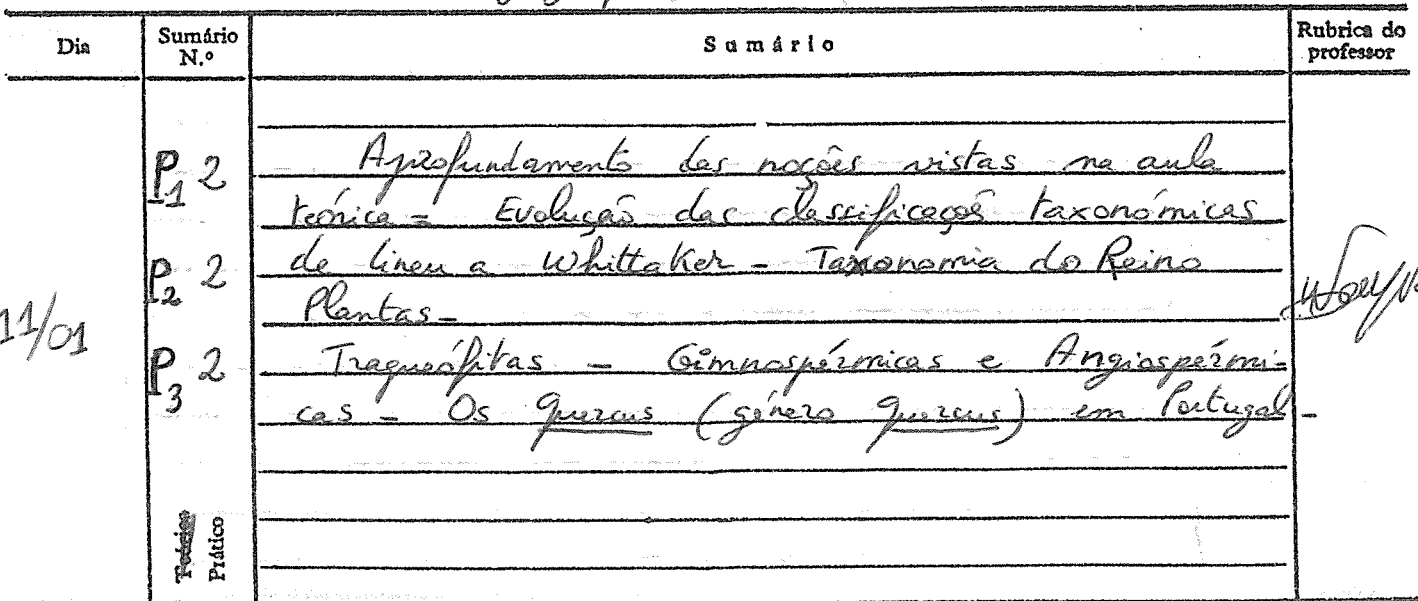 Dia Sumário N.º Sumário Rubrica do professor
P1 2 Aprofundamento das noções vistas na aula
teórica = Evolução das classificações taxonómicas
P2 2 de Lineu a Whittaker - Taxonomia do Reino
11/01 Plantas -
P3 2 Traqueófitas - Gimnospérmicas e Angiospérmi-
cas - Os Quercus (género Quercus) em Portugal -
Teórico
Prático